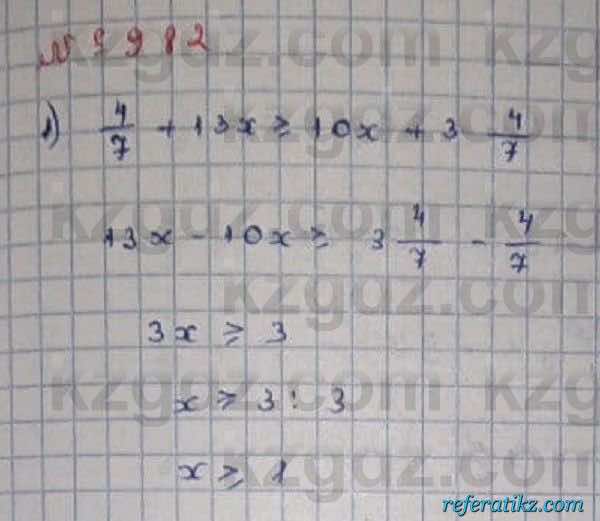 № 982
1) 4/7 + 13x ≥ 10x + 3 4/7
13x - 10x ≥ 3 4/7 - 4/7
3x ≥ 3
x ≥ 3 : 3
x ≥ 1
kzgdz.com
referatikz.com